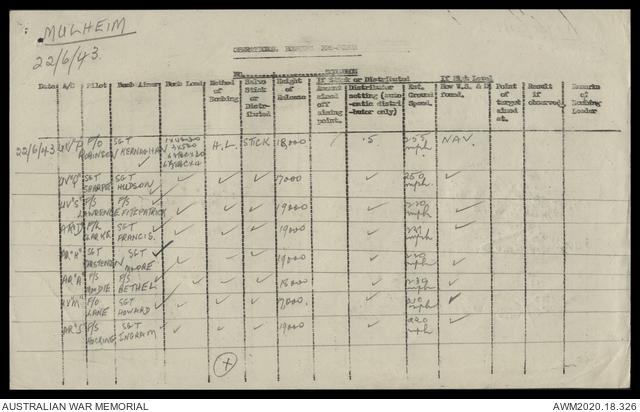 MULHEIM
22/6/43.
OPERATIONS. BOMBING PRO-FORMA
NO. SQUADRON
Date: A/C Pilot: Bomb Aimer: Bomb Load: Method of Bombing Salvo Stick or Distributed Height of Release If Stick or Distributed Amount aimed off aiming point. Distributor setting (automatic distributor only) Est. Ground Speed. If High Level How W.S. & D found. Point of target aimed at. Result if observed. Remarks of Bombing Leader
22/6/43 UV"P" F/O ROBINSON SGT KERNAGHAN H.L. STICK 18,000 .5 255 mph. NAV.
UV"Q" SGT SHARPE SGT HUDSON ✓ ✓ ✓ 17000 ✓ 250 mph. ✓
UV"S" F/S LAWRENCE F/S FITZPATRICK ✓ ✓ ✓ 19000 ✓ mph ✓
AR"D" CLARKE SGT FRANCIS. ✓ ✓ ✓ 19000 ✓ mph ✓
AR"H" SGT SGT MOORE ✓ ✓ ✓ 19000 ✓ mph ✓
AR"A" F/S MOODIE F/S BETHEL ✓ ✓ ✓ 18000 ✓ 230 mph ✓
UV"M" F/O LANE SGT HOWARD ✓ ✓ ✓ 17000. ✓ 210 mph ✓
AR"S" F/S HOCKING SGT INGRAM ✓ ✓ ✓ 19000 ✓ 220 mph ✓
AUSTRALIAN WAR MEMORIAL AWM2020.18.326